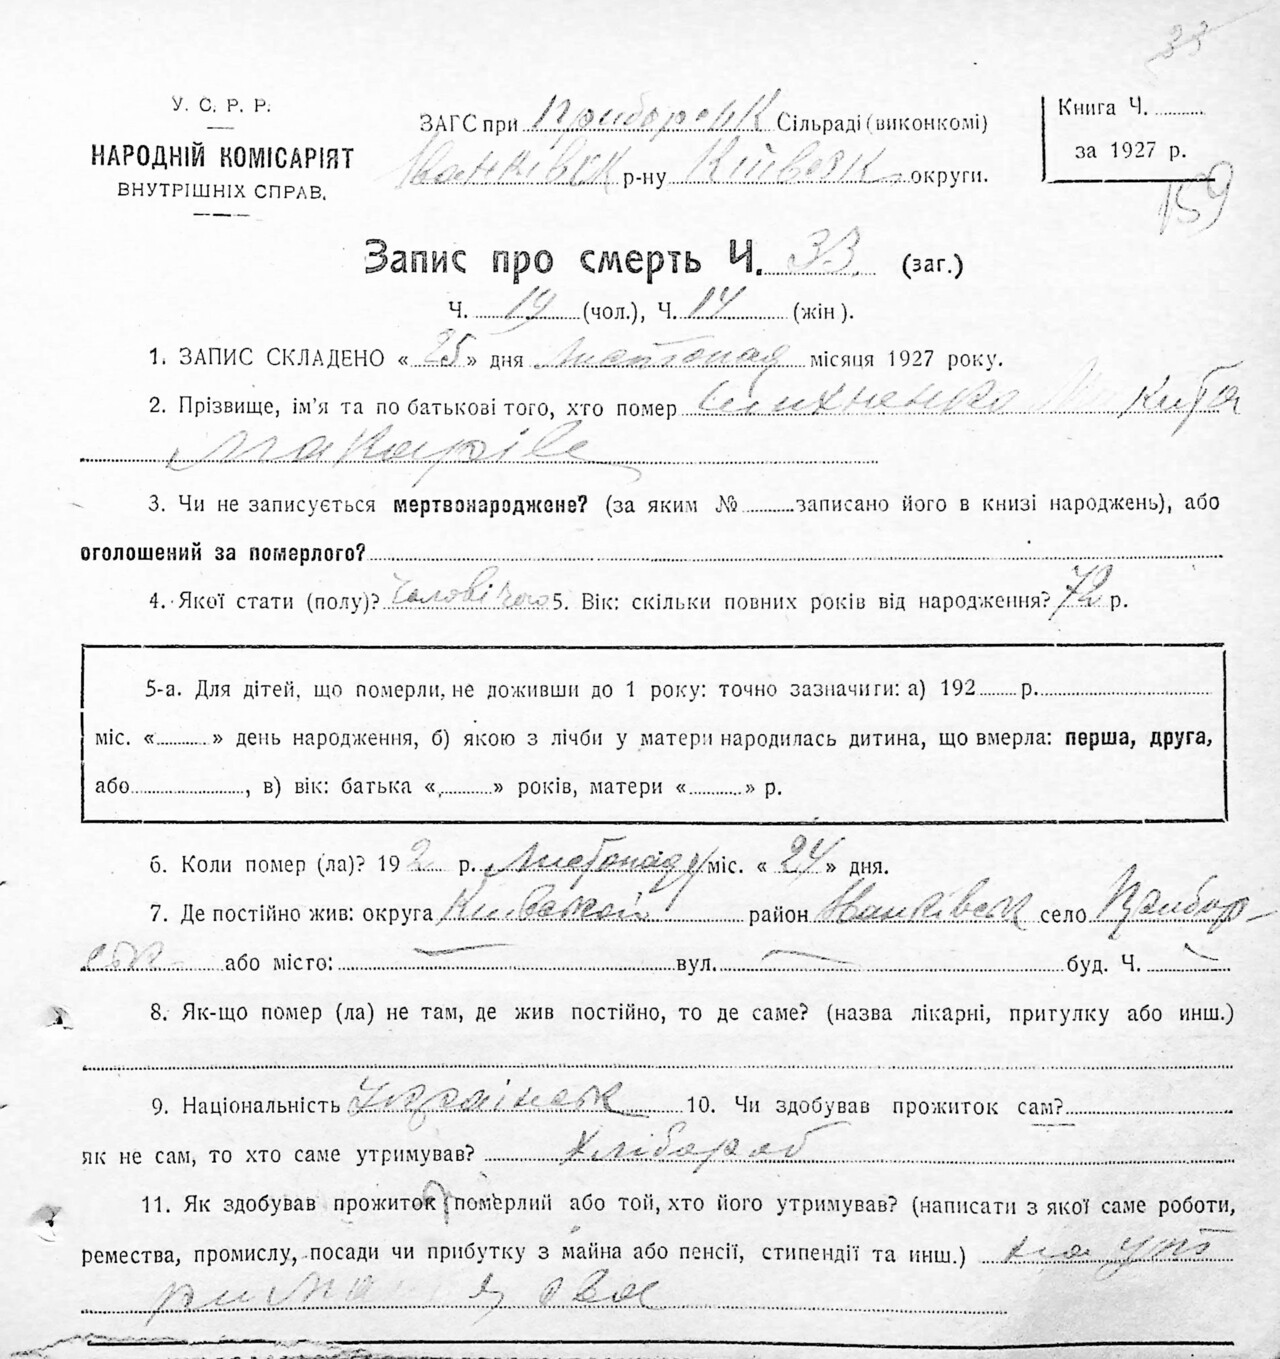 33
У. С. Р. Р.
НАРОДНІЙ КОМІСАРІЯТ
ВНУТРІШНІХ СПРАВ.
ЗАГС при Приборськ Сільраді (виконкомі)
Іванківськ р-ну Київськ. округи.
Книга Ч. ..........
за 1927 р.
159
Запис про смерть Ч. 33 (заг.)
Ч. 19 (чол.), Ч. 14 (жін).
1. ЗАПИС СКЛАДЕНО « 25 » дня Листопад місяця 1927 року.
2. Прізвище, ім'я та по батькові того, хто помер Микита
Макарів
3. Чи не записується мертвонароджене? (за яким № ..........записано його в книзі народжень), або
оголошений за померлого?
4. Якої стати (полу)? Чоловічого 5. Вік: скільки повних років від народження? 72 р.
5-а. Для дітей, що померли, не доживши до 1 року: точно зазначити: а) 192........р.
міс. «..........» день народження, б) якою з лічби у матери народилась дитина, що вмерла: перша, друга,
або...................., в) вік: батька «..........» років, матери «..........» р.
6. Коли помер (ла)? 192 р. Листопаду міс. « 24 » дня.
7. Де постійно жив: округа Київської район Іванківськ село Прибор-
ськ або місто: — вул. — буд. Ч. —
8. Як-що помер (ла) не там, де жив постійно, то де саме? (назва лікарні, притулку або инш.)
9. Національність Українськ 10. Чи здобував прожиток сам?
як не сам, то хто саме утримував? Хлібороб
11. Як здобував прожиток померлий або той, хто його утримував? (написати з якої саме роботи,
ремества, промислу, посади чи прибутку з майна або пенсії, стипендії та инш.) на ут